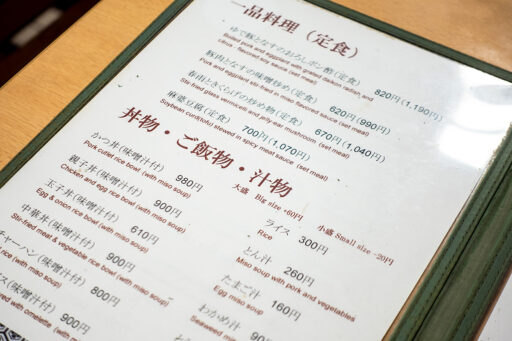 一品料理(定食)
ゆで豚となすのおろしポン酢(定食) 820円(1,190円)
Boiled pork and eggplant with grated daikon radish, and
citrus - flavored soy sauce (set meal)
豚肉となすの味噌炒め(定食) 620円(990円)
Pork and eggplant stir-fried in miso flavored sauce (set meal)
春雨ときくらげの炒め物(定食) 670円(1,040円)
Stir-fried glass vermicelli and jelly-ear mushroom (set meal)
麻婆豆腐(定食) 700円(1,070円)
Soybean curd(tofu) stewed in spicy meat sauce (set meal)
丼物・ご飯物・汁物
大盛 Big size +60円 小盛 Small size -20円
かつ丼(味噌汁付) 980円
Pork cutlet rice bowl (with miso soup)
親子丼(味噌汁付) 900円
Chicken and egg rice bowl (with miso soup)
玉子丼(味噌汁付) 610円
Egg & onion rice bowl (with miso soup)
中華丼(味噌汁付) 900円
Stir-fried meat & vegetable rice bowl (with miso soup)
チャーハン(味噌汁付) 800円
(with miso soup)
ス(味噌汁付) 900円
with omelette (with miso
ライス 300円
Rice
とん汁 260円
Miso soup with pork and vegetables
たまご汁 160円
Egg miso soup
わかめ汁
Seaweed